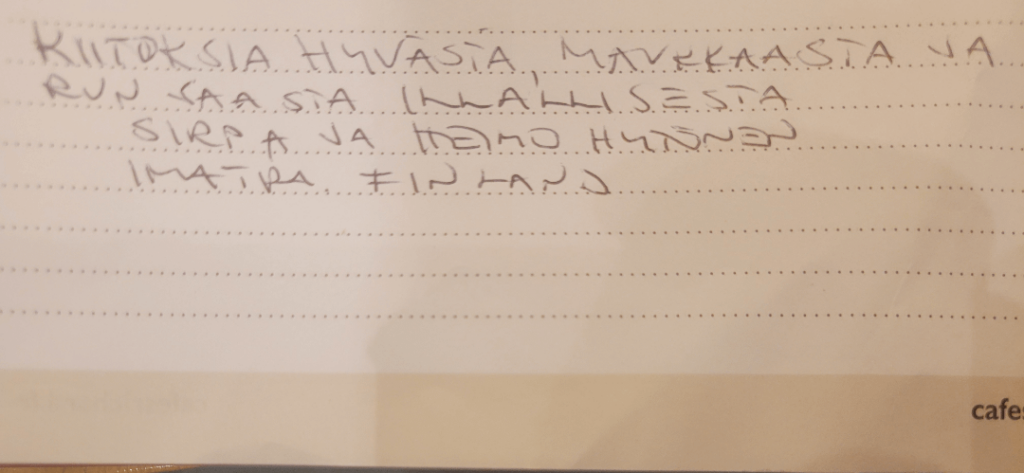 KIITOKSIA HYVÄSTÄ, MAUKKAASTA JA
RUNSAASTA ILLALLISESTA
SIRPA JA HEIMO HYTÖNEN
IMATRA, FINLAND
cafes